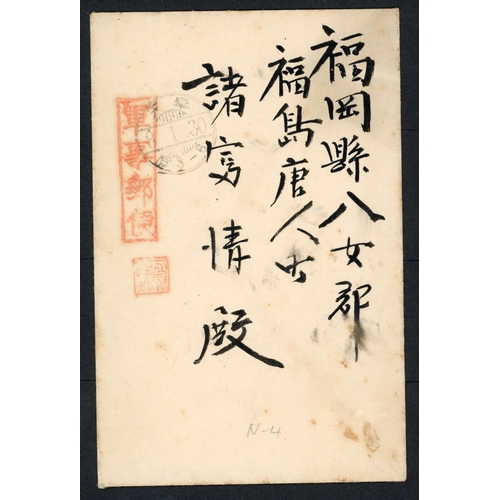 福岡縣八女郡
福島唐人町
諸富情殿
軍事郵便
1.30
N-4